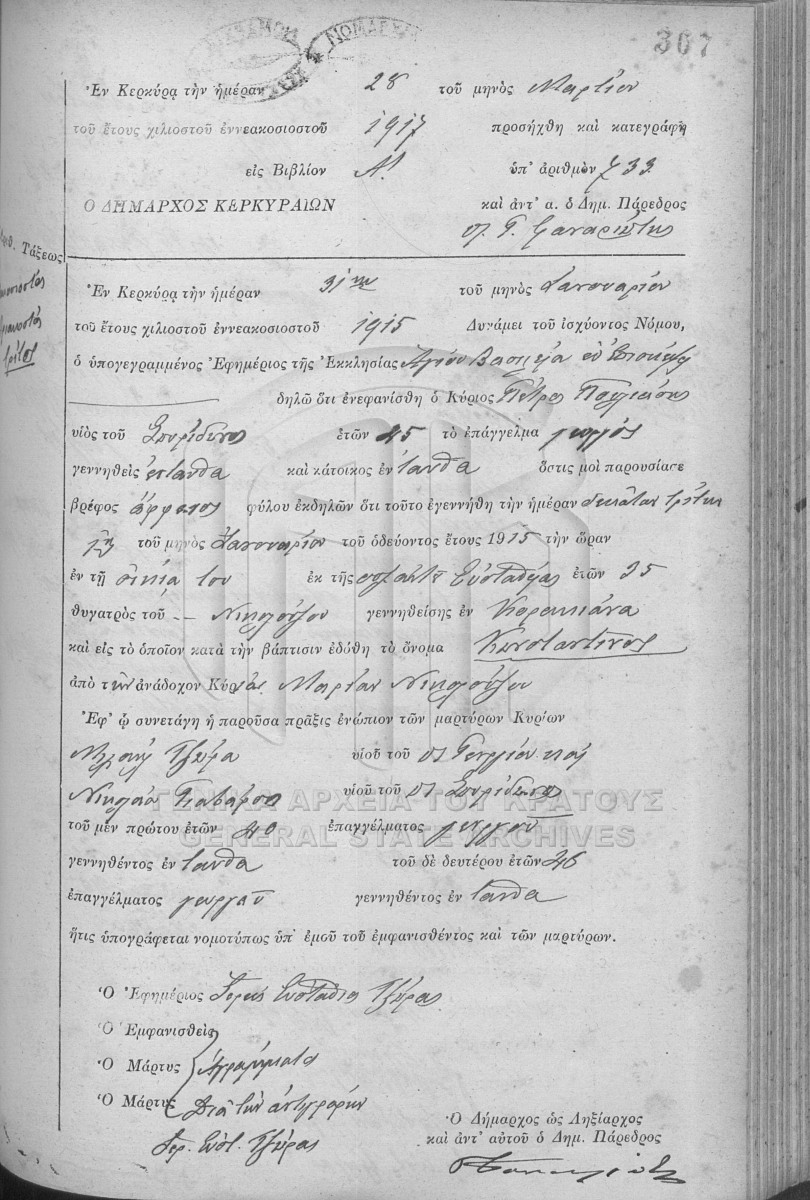 ΝΟΜΑΡΧΙΑ
307
Ἐν Κερκύρᾳ τὴν ἡμέραν 28 τοῦ μηνὸς Μαρτίου
τοῦ ἔτους χιλιοστοῦ ἐννεακοσιοστοῦ 1917 προσήχθη καὶ κατεγράφη
εἰς Βιβλίον Α! ὑπ' ἀριθμὸν 733
Ο ΔΗΜΑΡΧΟΣ ΚΕΡΚΥΡΑΙΩΝ καὶ ἀντ' α. ὁ Δημ. Πάρεδρος
Τάξεως
τρίτος
Ἐν Κερκύρᾳ τὴν ἡμέραν 31ην τοῦ μηνὸς Ἰανουαρίου
τοῦ ἔτους χιλιοστοῦ ἐννεακοσιοστοῦ 1915 Δυνάμει τοῦ ἰσχύοντος Νόμου,
ὁ ὑπογεγραμμένος Ἐφημέριος τῆς Ἐκκλησίας Ἁγίου Βασιλείου
δηλῶ ὅτι ἐνεφανίσθη ὁ Κύριος Πέτρος
υἱὸς τοῦ Σπυρίδωνος ἐτῶν 45 τὸ ἐπάγγελμα γεωργὸς
γεννηθεὶς ἐνταῦθα καὶ κάτοικος ἐν ταῦθα ὅστις μοὶ παρουσίασε
βρέφος ἄρρενος φύλου ἐκδηλῶν ὅτι τοῦτο ἐγεννήθη τὴν ἡμέραν δεκάτην τρίτην
τοῦ μηνὸς Ἰανουαρίου τοῦ ὁδεύοντος ἔτους 1915 τὴν ὥραν
ἐν τῇ οἰκίᾳ του ἐκ τῆς Εὐσταθίας ἐτῶν 35
θυγατρὸς τοῦ Νικολούζου γεννηθείσης ἐν Κορακιάνα
καὶ εἰς τὸ ὁποῖον κατὰ τὴν βάπτισιν ἐδόθη τὸ ὄνομα Κωνσταντῖνος
ἀπὸ τὴν ἀνάδοχον Κυρίαν Μαρίαν Νικολούζου
Ἐφ' ᾧ συνετάγη ἡ παροῦσα πρᾶξις ἐνώπιον τῶν μαρτύρων Κυρίων
Τζύρα υἱοῦ τοῦ Γεωργίου καὶ
Νικολάου υἱοῦ τοῦ Σπυρίδωνος
ΓΕΝΙΚΑ ΑΡΧΕΙΑ ΤΟΥ ΚΡΑΤΟΥΣ
τοῦ μὲν πρώτου ἐτῶν 40 ἐπαγγέλματος γεωργοῦ
GENERAL STATE ARCHIVES
γεννηθέντος ἐν ταῦθα τοῦ δὲ δευτέρου ἐτῶν 46
ἐπαγγέλματος γεωργοῦ γεννηθέντος ἐν ταῦθα
ἥτις ὑπογράφεται νομοτύπως ὑπ' ἐμοῦ τοῦ ἐμφανισθέντος καὶ τῶν μαρτύρων.
Ὁ Ἐφημέριος Ἱερεὺς Εὐστάθιος Τζύρας
Ὁ Ἐμφανισθεὶς
Ὁ Μάρτυς Ἀγράμματοι
Ὁ Μάρτυς Διὰ τὴν ἀντιγραφὴν
Ἱερ. Εὐστ. Τζύρας
Ὁ Δήμαρχος ὡς Ληξίαρχος
καὶ ἀντ' αὐτοῦ ὁ Δημ. Πάρεδρος